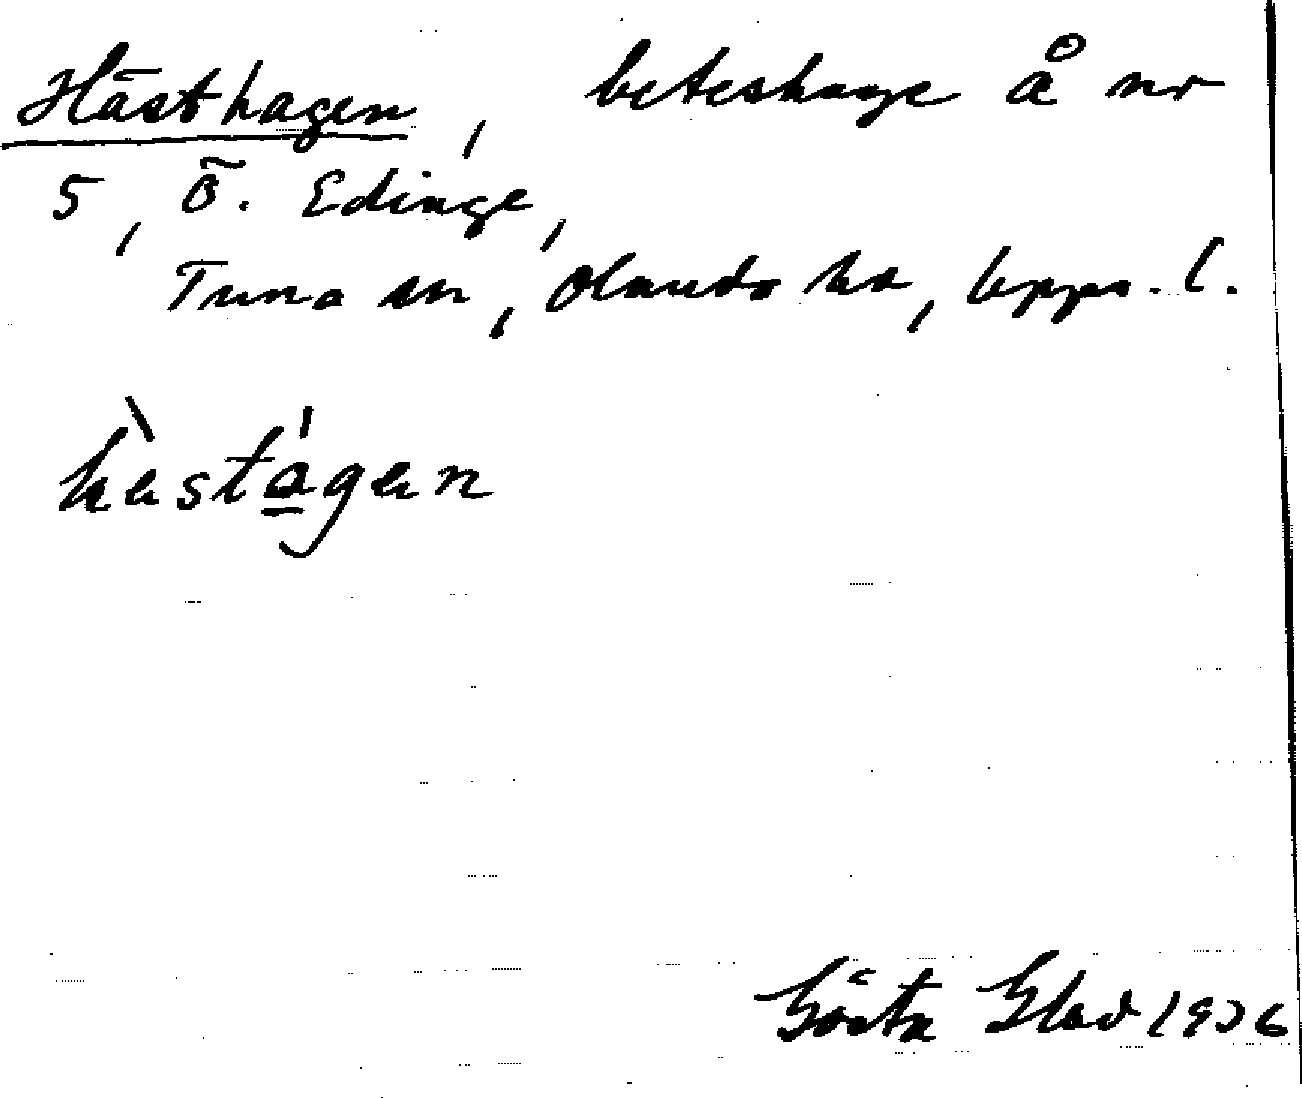 Hästhagen, beteshage å nr
5, Ö. Edinge,
Tuna sn, Olands hd, Upps. l.
hàstágan
Gösta Glad 1926